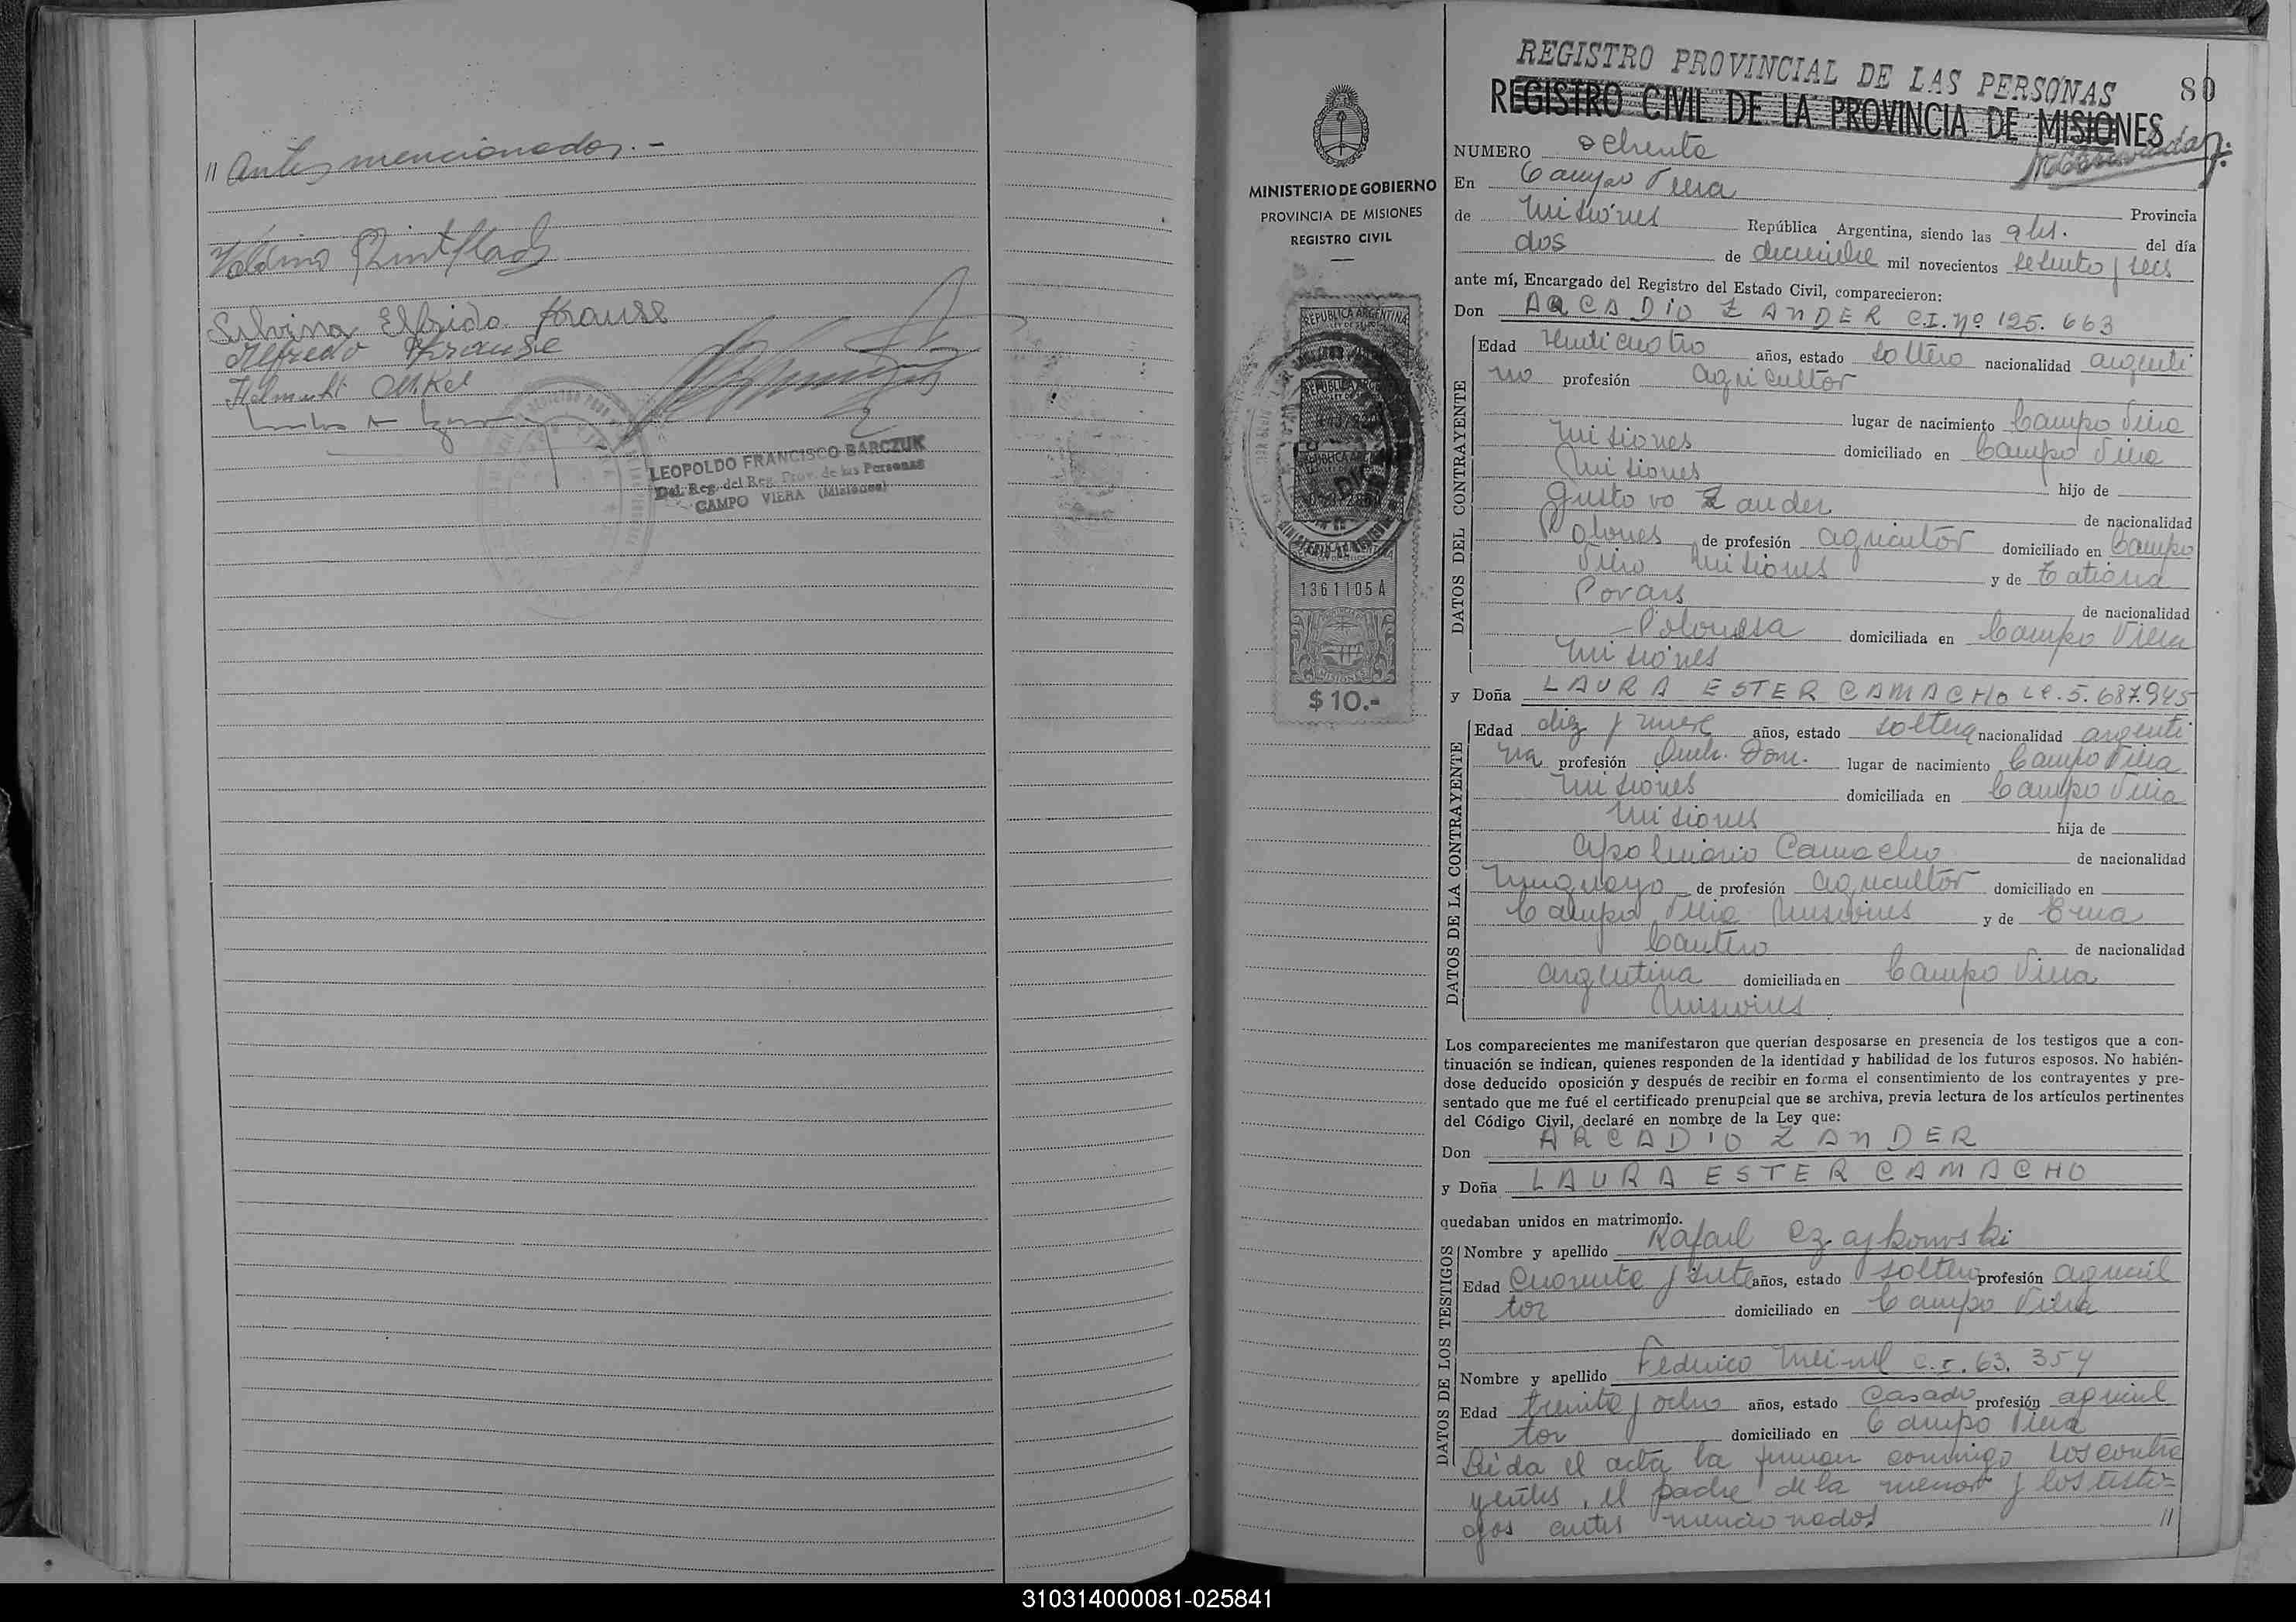 // Antes mencionados.-
Silvina Elfrida Krause
Alfredo Krause
Helmuth
LEOPOLDO FRANCISCO BARCZUK
Del. Reg. del Reg. Prov. de las Personas
CAMPO VIERA (Misiones)
MINISTERIO DE GOBIERNO
PROVINCIA DE MISIONES
REGISTRO CIVIL
REPUBLICA ARGENTINA
1361105A
MISIONES
$10.-
REGISTRO PROVINCIAL DE LAS PERSONAS
80
REGISTRO CIVIL DE LA PROVINCIA DE MISIONES
NUMERO ochenta
En Campo Viera
de Misiones Provincia
República Argentina, siendo las 9 hs. del día
dos de diciembre mil novecientos setenta y seis
ante mí, Encargado del Registro del Estado Civil, comparecieron:
Don ARCADIO ZANDER C.I. Nº 125.663
DATOS DEL CONTRAYENTE
Edad venticuatro años, estado soltero nacionalidad argenti
no profesión agricultor
lugar de nacimiento Campo Viera
Misiones domiciliado en Campo Viera
Misiones hijo de
Gustavo Zander de nacionalidad
Polones de profesión agricultor domiciliado en Campo
Viera Misiones y de Tatiana
de nacionalidad
Polonesa domiciliada en Campo Viera
Misiones
y Doña LAURA ESTER CAMACHO LC. 5.687.945
DATOS DE LA CONTRAYENTE
Edad diez y nueve años, estado soltera nacionalidad argenti
na profesión Queh. Dom. lugar de nacimiento Campo Viera
Misiones domiciliada en Campo Viera
Misiones hija de
Apolinario Camacho de nacionalidad
Uruguayo de profesión agricultor domiciliado en
Campo Viera Misiones y de Erna
Cantero de nacionalidad
argentina domiciliada en Campo Viera
Misiones
Los comparecientes me manifestaron que querían desposarse en presencia de los testigos que a con-
tinuación se indican, quienes responden de la identidad y habilidad de los futuros esposos. No habién-
dose deducido oposición y después de recibir en forma el consentimiento de los contrayentes y pre-
sentado que me fué el certificado prenupcial que se archiva, previa lectura de los artículos pertinentes
del Código Civil, declaré en nombre de la Ley que:
Don ARCADIO ZANDER
y Doña LAURA ESTER CAMACHO
quedaban unidos en matrimonio.
DATOS DE LOS TESTIGOS
Nombre y apellido Rafael Czajkowski
Edad Cuarenta y siete años, estado soltero profesión agricul
tor domiciliado en Campo Viera
Nombre y apellido Federico C.I. 63.354
Edad treinta y ocho años, estado Casado profesión agricul
tor domiciliado en Campo Viera
Leida el acta la firman conmigo los contra
yentes, el padre de la menor y los testi=
gos antes mencionados //
310314000081-025841